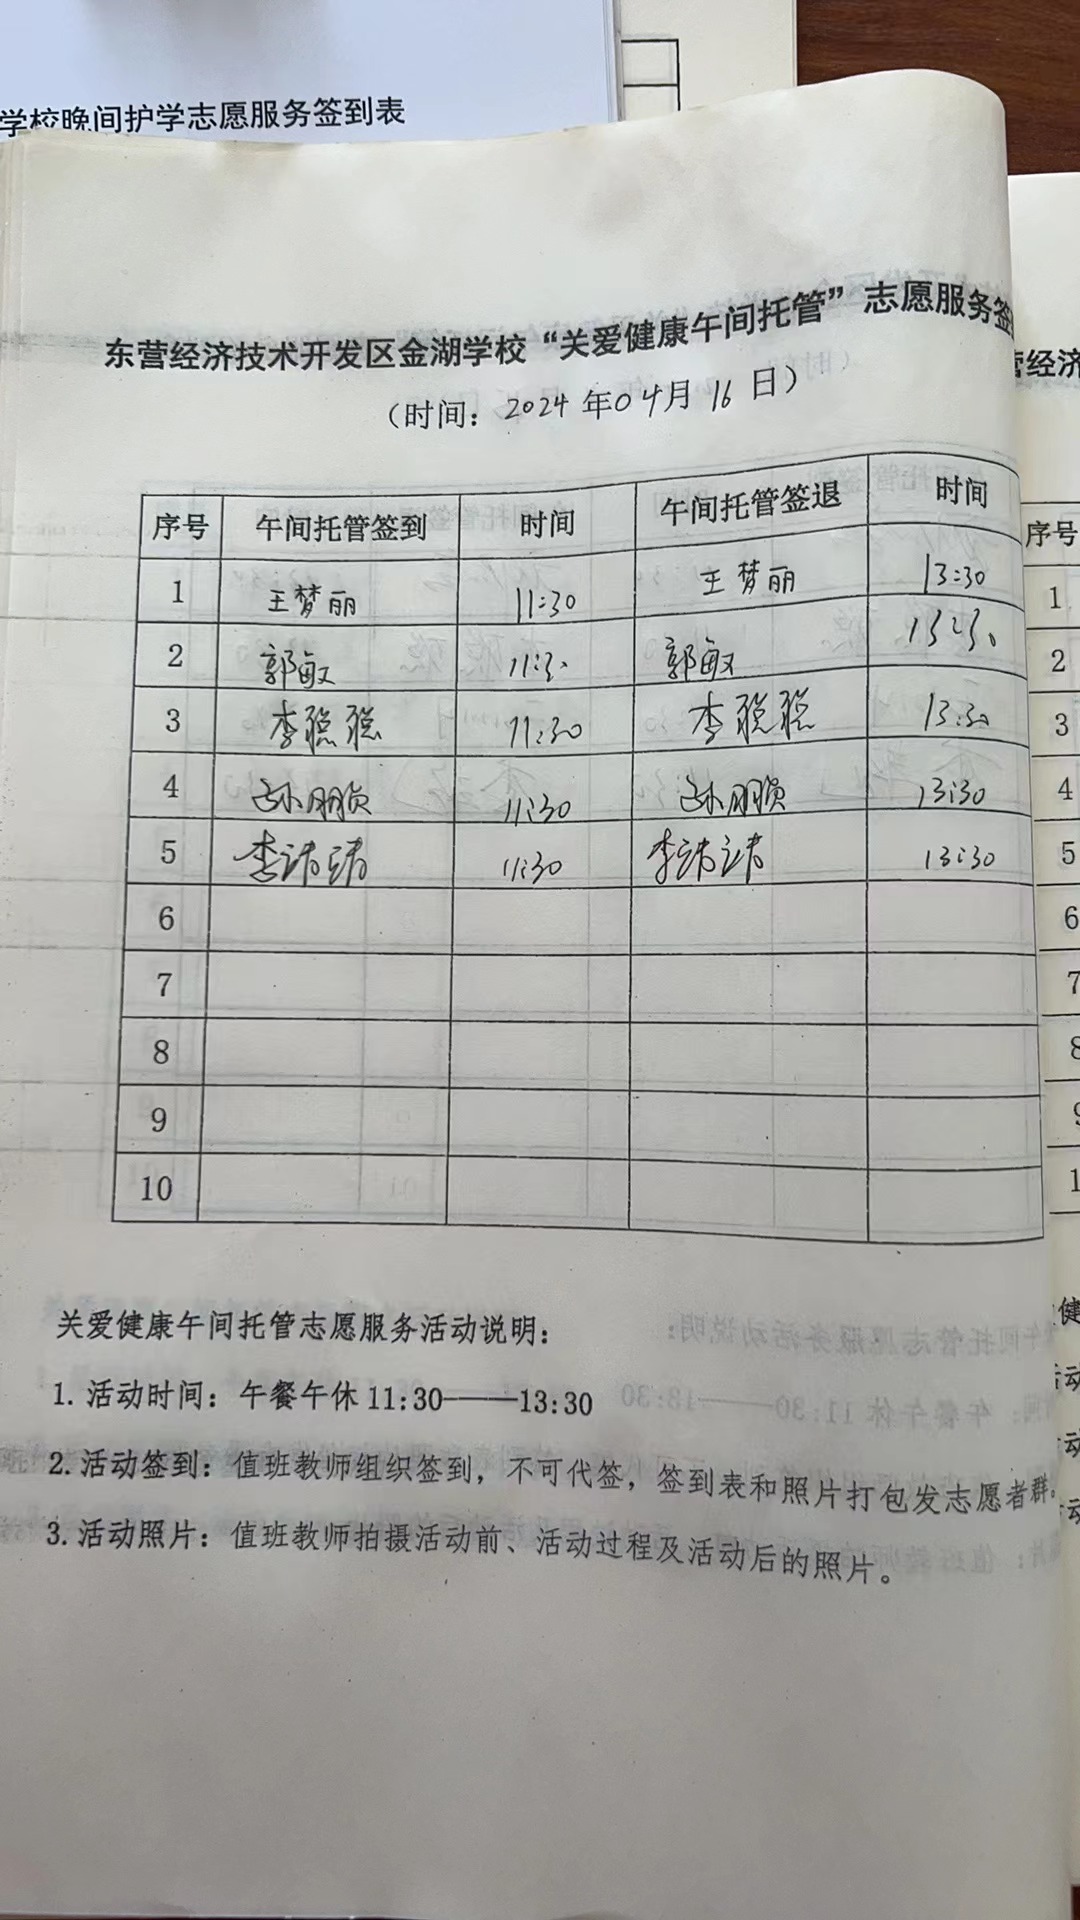 学校晚间护学志愿服务签到表
东营经济技术开发区金湖学校“关爱健康午间托管”志愿服务签
（时间：2024年04月16日）
序号 午间托管签到 时间 午间托管签退 时间
1 王梦丽 11:30 王梦丽 13:30
2 郭敏 11:30 郭敏 13:30
3 李聪聪 11:30 李聪聪 13:30
4 孙鹏贞 11:30 孙鹏贞 13:30
5 李靖靖 11:30 李靖靖 13:30
6
7
8
9
10
关爱健康午间托管志愿服务活动说明：
1. 活动时间：午餐午休 11:30——13:30
2. 活动签到：值班教师组织签到，不可代签，签到表和照片打包发志愿者群。
3. 活动照片：值班教师拍摄活动前、活动过程及活动后的照片。
营经济
序号
1
2
3
4
5
6
7
8
9
1
健
活动
动
动